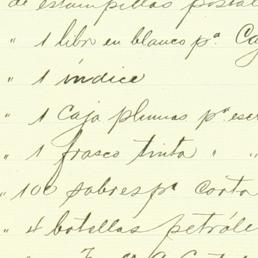 de estampillas postal
" 1 libro en blanco pª. Ca
" 1 índice
" 1 Caja plumas pª. esc
" 1 frasco tinta " "
" 100 sobres pª carta
" 4 botellas petróle